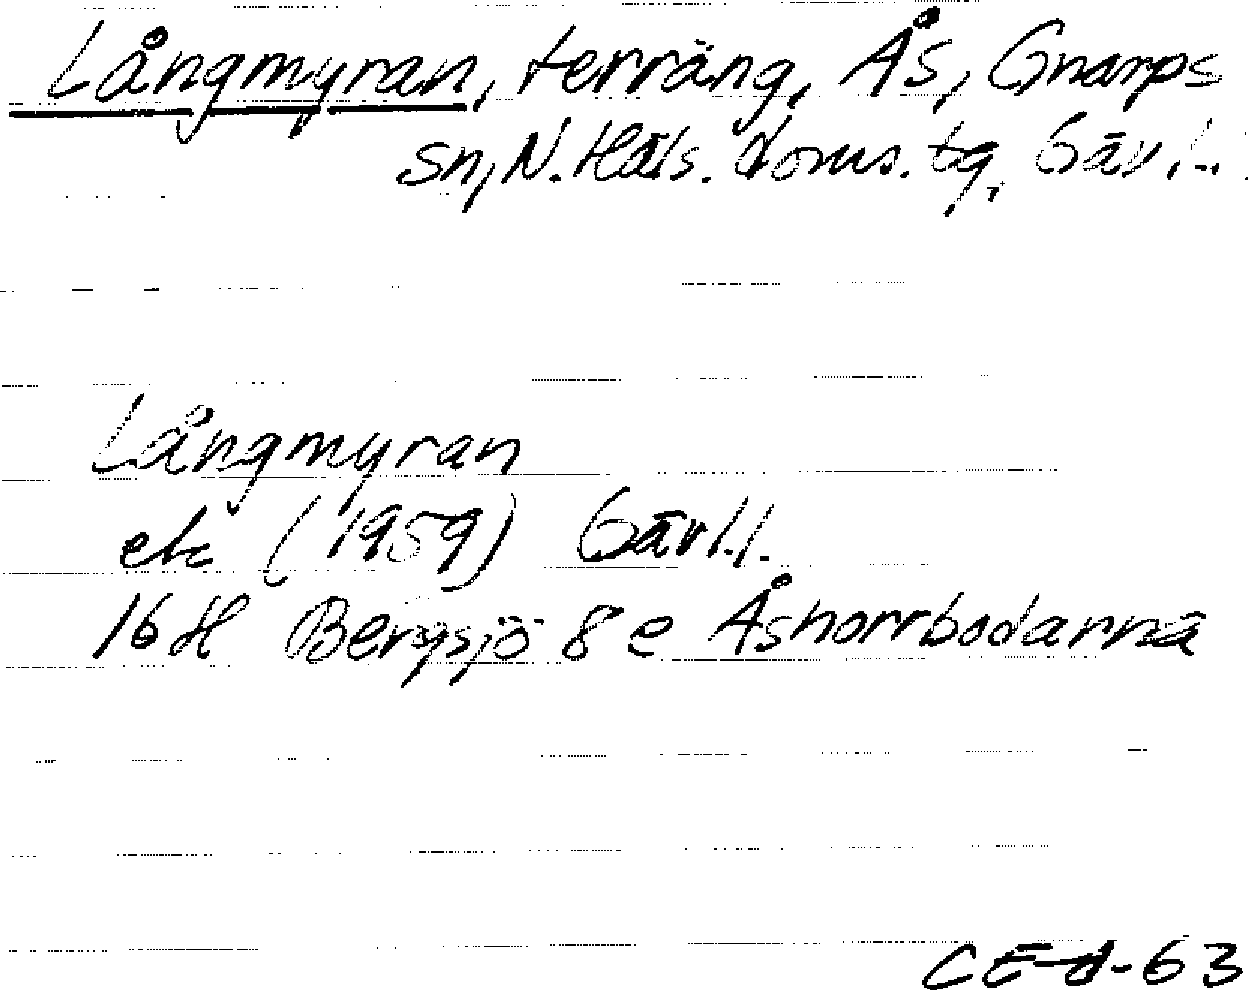 Långmyran, terräng, Ås, Gnarps
sn, N. Häls. doms. tg, Gävl.l.
Långmyran
ek (1959) Gävl.l.
16 H Bergsjö 8 e Åsnorrbodarna
CE-d-63